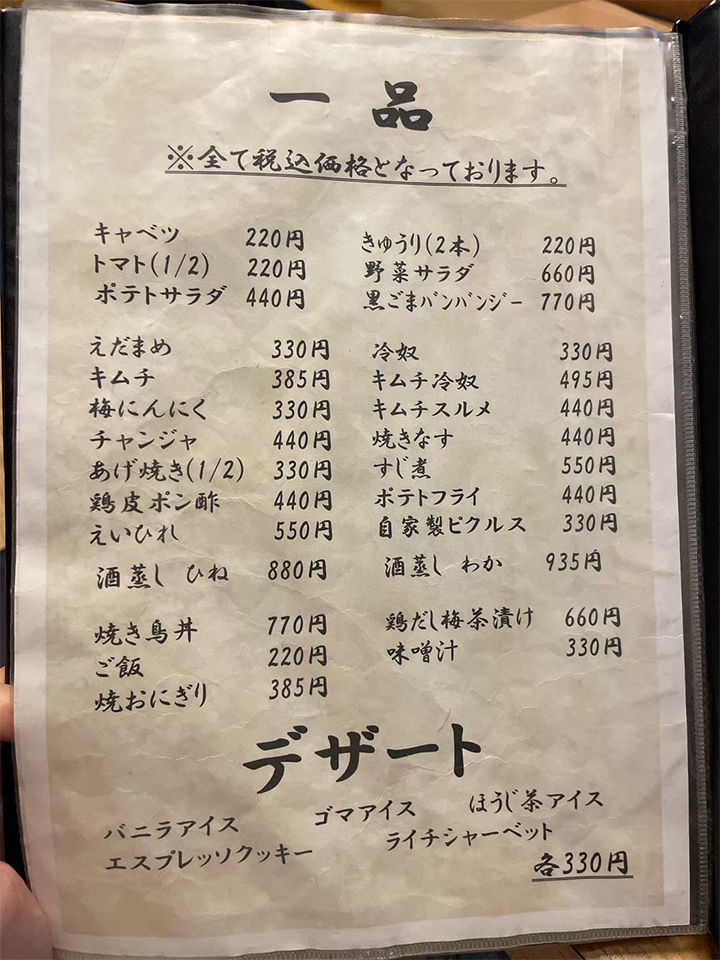 一品
※全て税込価格となっております。
キャベツ 220円
トマト(1/2) 220円
ポテトサラダ 440円
きゅうり(2本) 220円
野菜サラダ 660円
黒ごまバンバンジー 770円
えだまめ 330円
キムチ 385円
梅にんにく 330円
チャンジャ 440円
あげ焼き(1/2) 330円
鶏皮ポン酢 440円
えいひれ 550円
酒蒸し ひね 880円
冷奴 330円
キムチ冷奴 495円
キムチスルメ 440円
焼きなす 440円
すじ煮 550円
ポテトフライ 440円
自家製ピクルス 330円
酒蒸し わか 935円
焼き鳥丼 770円
ご飯 220円
焼おにぎり 385円
鶏だし梅茶漬け 660円
味噌汁 330円
デザート
バニラアイス ゴマアイス ほうじ茶アイス
エスプレッソクッキー ライチシャーベット
各330円